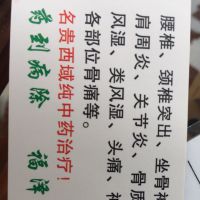 腰椎、颈椎突出、坐骨神
肩周炎、关节炎、骨质
风湿、类风湿、头痛、神
各部位骨痛等。
名贵西域纯中药治疗！
药到病除 福泽